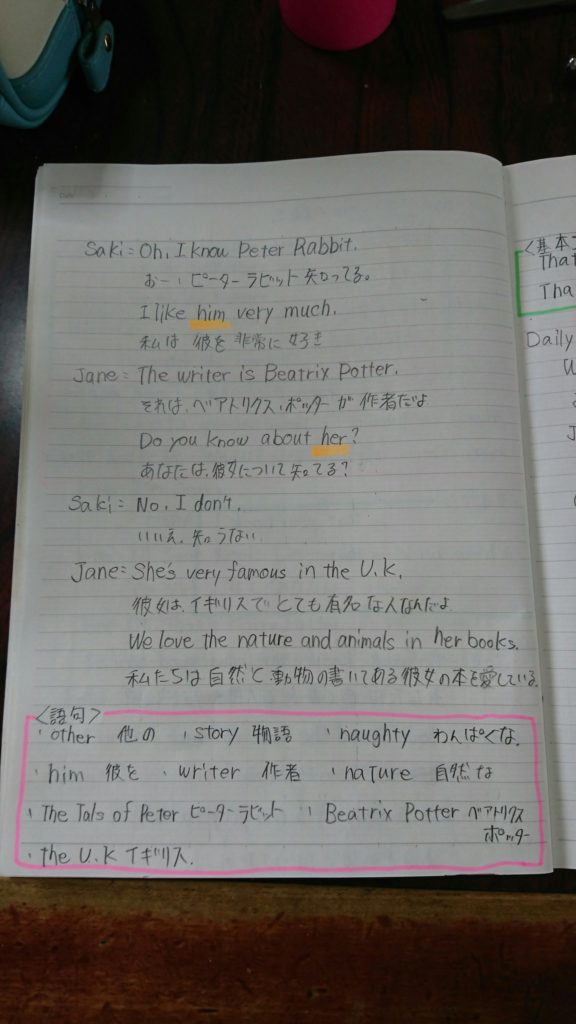 Saki: Oh, I know Peter Rabbit.
おー、ピーターラビット知ってる。
I like him very much.
私は 彼を 非常に 好き
Jane: The writer is Beatrix Potter.
それは、ベアトリクス、ポッターが 作者だよ
Do you know about her?
あなたは、彼女について知ってる?
Saki: No, I don't.
いいえ、知らない
Jane: She's very famous in the U.K.
彼女は、イギリスでとても有名な人なんだよ
We love the nature and animals in her books.
私たちは自然と動物の書いてある彼女の本を愛している。
<語句>
・other 他の ・story 物語 ・naughty わんぱくな。
・him 彼を ・writer 作者 ・nature 自然な
・The Tals of Peter ピーターラビット ・Beatrix Potter ベアトリクス
ポッター
・the U.K イギリス.
<基本
That
Tha
Daily